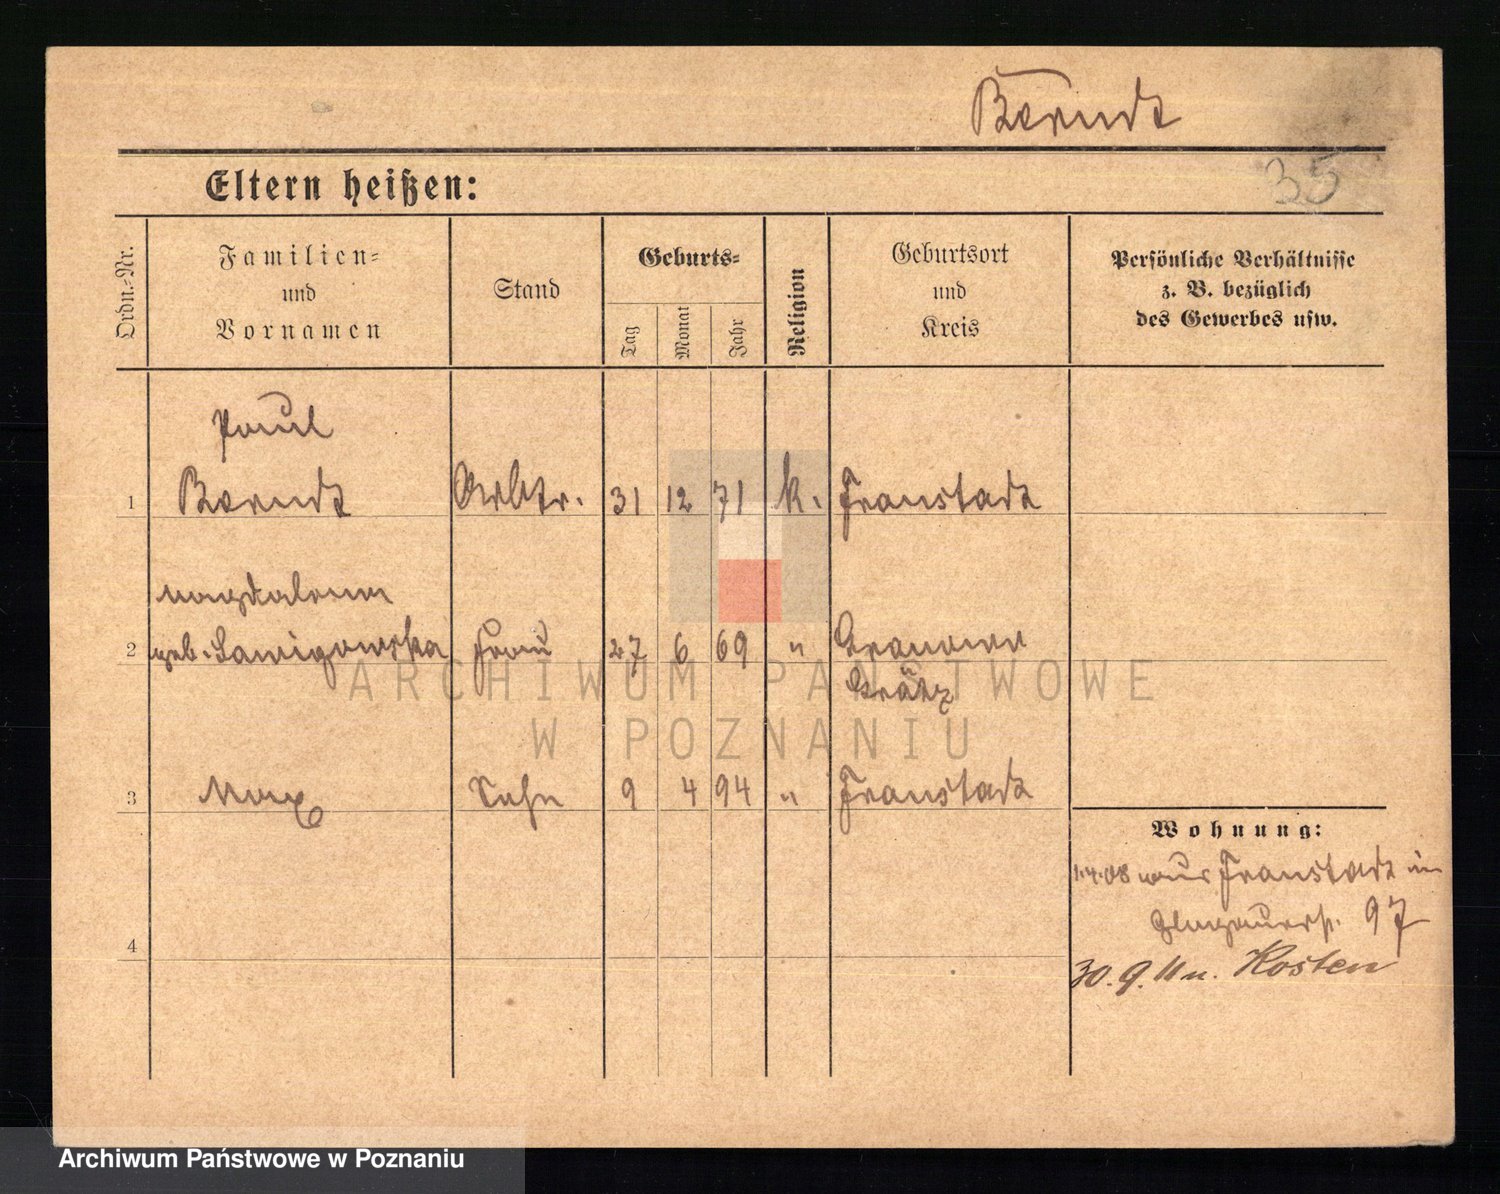 Berndt
35
Eltern heißen:
Ordn.-Nr.
Familien-
und
Vornamen
Stand
Geburts-
Tag
Monat
Jahr
Religion
Geburtsort
und
Kreis
Persönliche Verhältnisse
z. B. bezüglich
des Gewerbes usw.
Paul
1 Berndt Arbtr. 31 12 71 k. Fraustadt
Magdalena
2 geb. Frau 27 6 69 "
Grätz
3 Max Sohn 9 4 94 " Fraustadt
Wohnung:
1.4.08 aus Fraustadt in
Glogauerst. 97
4
30. 9. 11 n. Kosten
ARCHIWUM PAŃSTWOWE
W POZNANIU
Archiwum Państwowe w Poznaniu